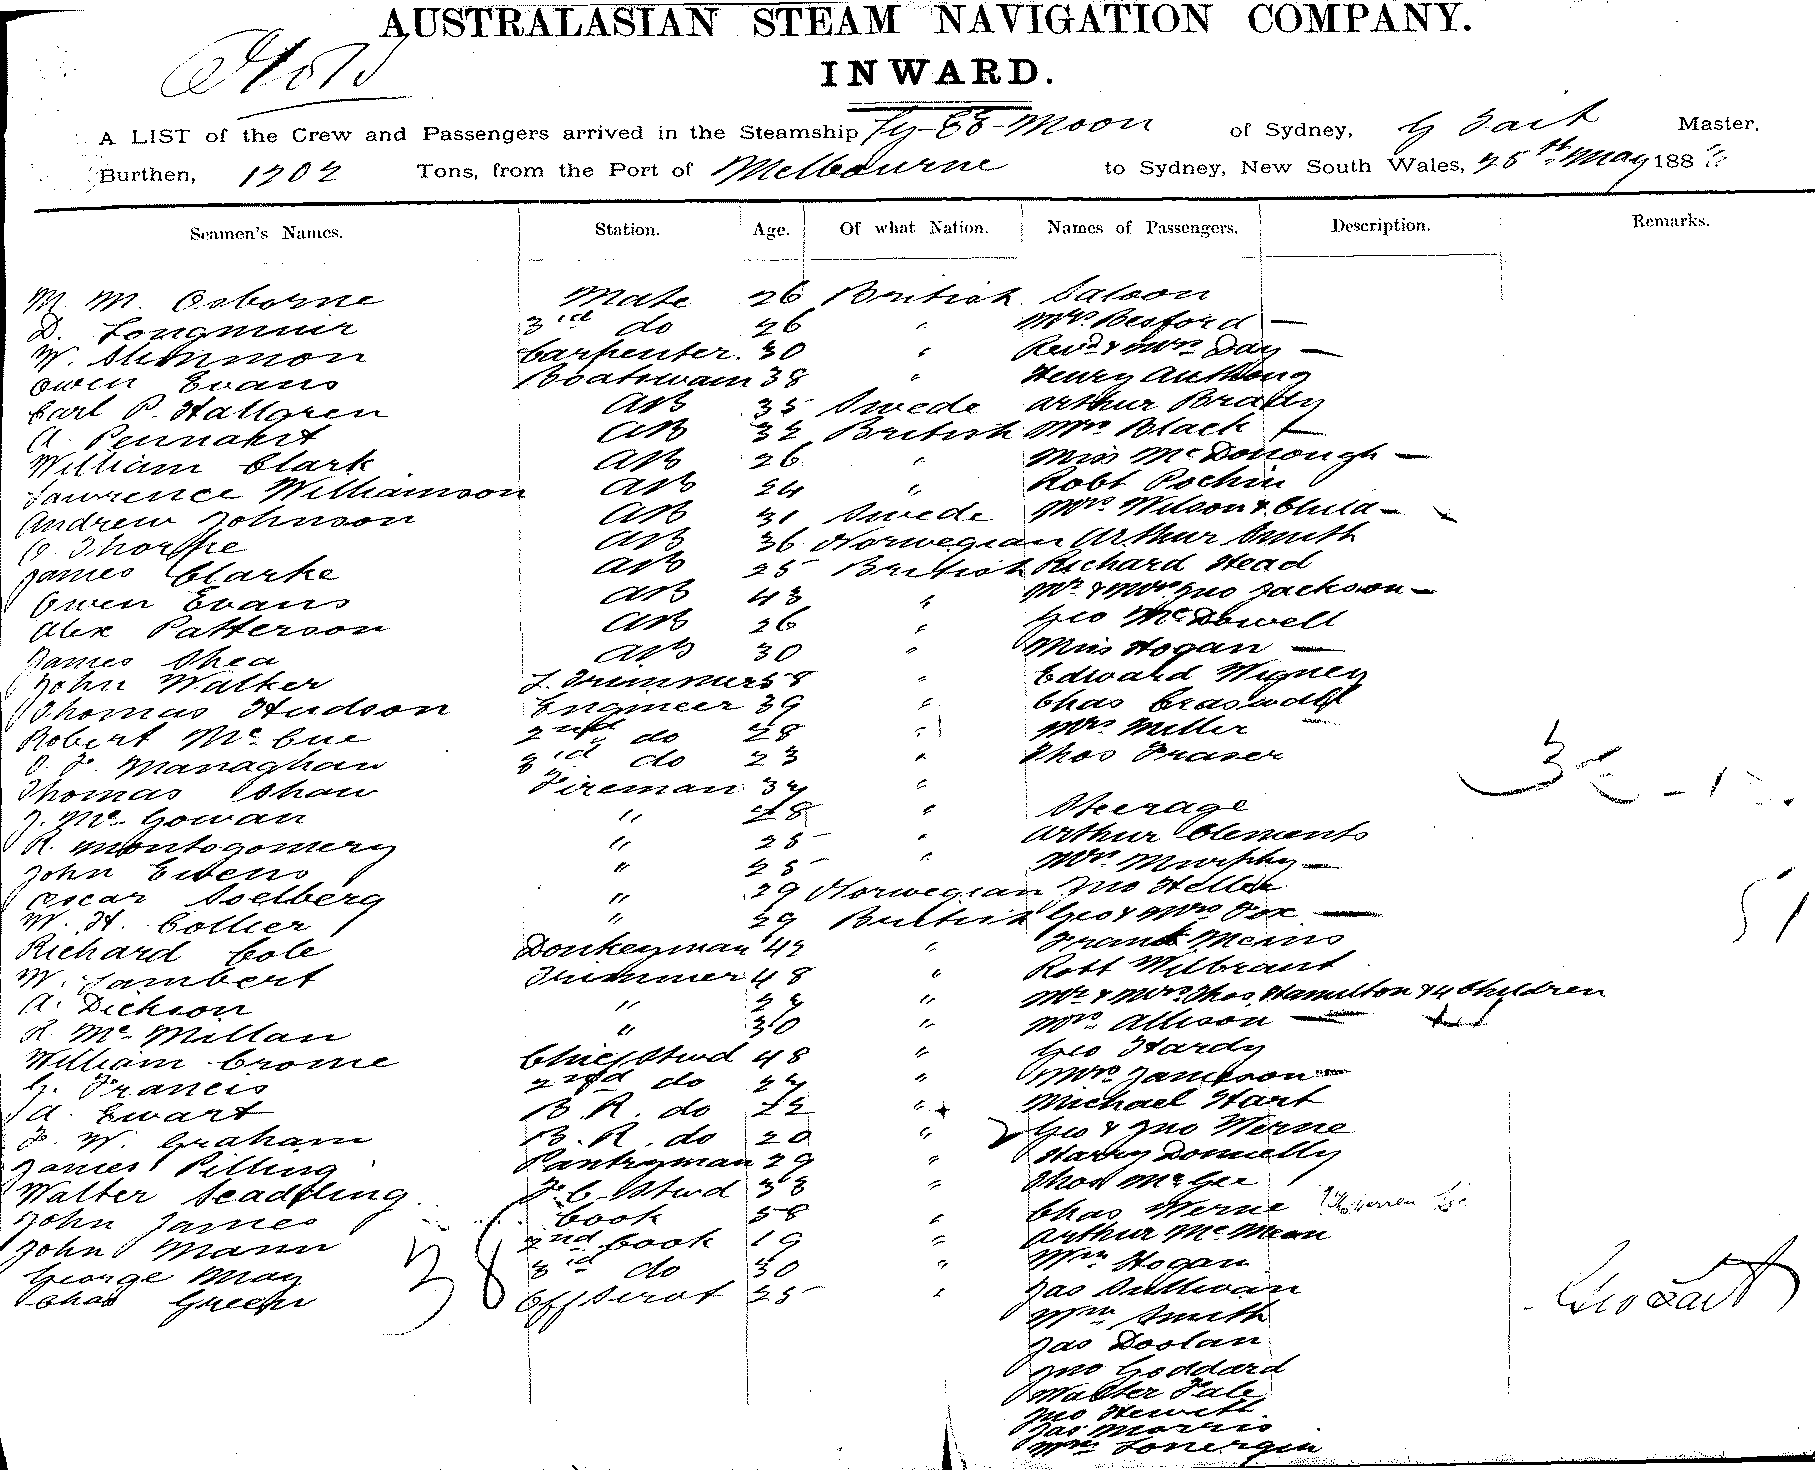 AUSTRALASIAN STEAM NAVIGATION COMPANY.
INWARD.
A LIST of the Crew and Passengers arrived in the Steamship Ly-Ee-Moon of Sydney, G Tait Master,
Burthen, 1202 Tons, from the Port of Melbourne to Sydney, New South Wales, 25th May 188
Seamen's Names. Station. Age. Of what Nation. Names of Passengers. Description. Remarks.
M. M. Osborne Mate 26 British Saloon
D. Longmuir 3rd do 26 " Mrs. Besford —
W. Slimmon Carpenter. 30 " Revd & Mrs Day —
Owen Evans Boatswain 38 " Henry Anthony
Carl P. Hallgren AB 35 Swede Arthur Brady
A. Pennant AB 32 British Mrs Black —
William Clark AB 26 " Miss McDonough —
Lawrence Williamson AB 24 " Robt Pochin
Andrew Johnson AB 31 Swede Mrs Wilson & Child —
Thorpe AB 36 Norwegian Arthur Smith
James Clarke AB 25 British Richard Head
Owen Evans AB 43 " Mr & Mrs Jno Jackson —
Alex Patterson AB 26 " Geo McDowell
James Shea AB 30 " Miss Hogan —
John Walker L. Trimmer 58 " Edward Wigney
Thomas Hudson Engineer 39 " Chas
Robert McCue 2nd do 28 " Mrs Miller
Managhan 3rd do 23 " Thos Fraser
Thomas Shaw Fireman "
J. McGowan " 28 " Steerage
R. Montogomery " 25 " Arthur Clements
John Ewens " 25 " Murphy —
Oscar Soelberg " 29 Norwegian Jno
W. H. Collier " 29 British Geo & Mrs Fox —
Richard Cole Donkeyman 42 " Frank Meins
W. Lambert Trimmer 48 " Robt Wilbrant
A. Dickson " " Mr & Mrs Thos. Hamilton & 4 Children
R. McMillan " 30 " Mrs Allison —
William Crome Chief Stwd 48 " Geo Hardy
G. Francis 2nd do " Mrs Jameson —
A. Ewart B. R. do 22 " Michael Hart
F. W. Graham B. R. do 20 " Geo & Jno Werne
James Pilling Pantryman 29 " Harry Donnelly
Walter Scadding F. C. Stwd 33 " Thos McGee
John James Cook 58 " Chas Werne
John Mann 2nd Cook 19 " Arthur McMean
George May 3rd do 30 " Wm Hogan
Chas Green Off Servt 25 " Jas Sullivan
38
Wm Smith
Jas Doolan
Jno Goddard
Walter Tale
Jno Hewitt
Jas Morris
Lonergin
51
Geo Tait